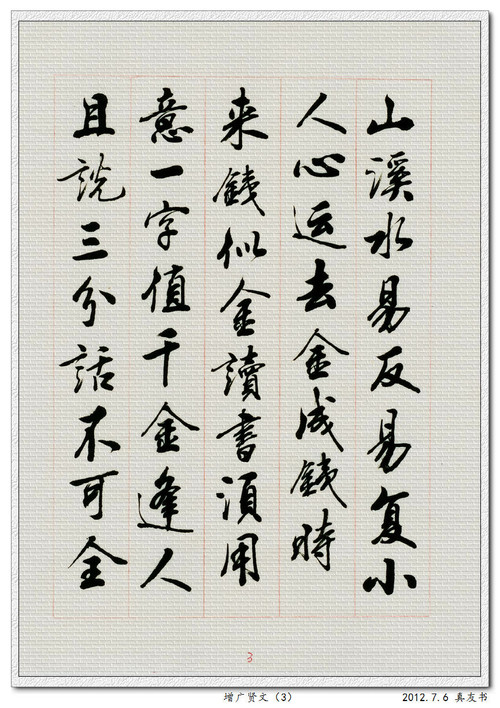 山溪水易反易复小
人心运去金成錢時
来錢似金讀書須用
意一字值千金逢人
且説三分話不可全
3
增广贤文（3）
2012.7.6 真友书